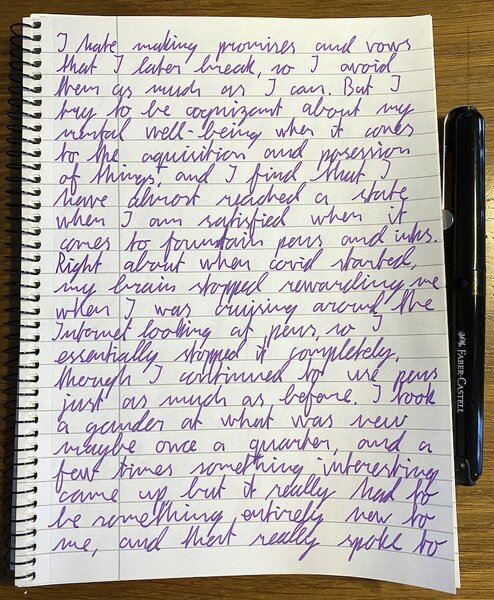 I hate making promises and vows
that I later break, so I avoid
them as much as I can. But I
try to be cognizant about my
mental well-being when it comes
to the aquisition and posession
of things, and I find that I
have almost reached a state
when I am satisfied when it
comes to fountain pens and inks.
Right about when covid started,
my brain stopped rewarding me
when I was cruising around the
Internet looking at pens, so I
essentially stopped it completely,
though I continued to use pens
just as much as before. I took
a gander at what was new
maybe once a quarter, and a
few times something interesting
came up but it really had to
be something entirely new to
me, and that really spoke to
FABER-CASTELL